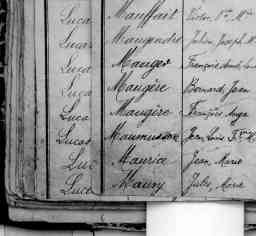 Lucas Mauffait Victor
Lucas Maugendre Julien Joseph
Luca Mauger François
Luca Maugère Bernard Jean
Luca Maugère François Ange
Lucas Maumusson Jean Louis
Luc Maurice Jean Marie
Luce Maury Jules Marie